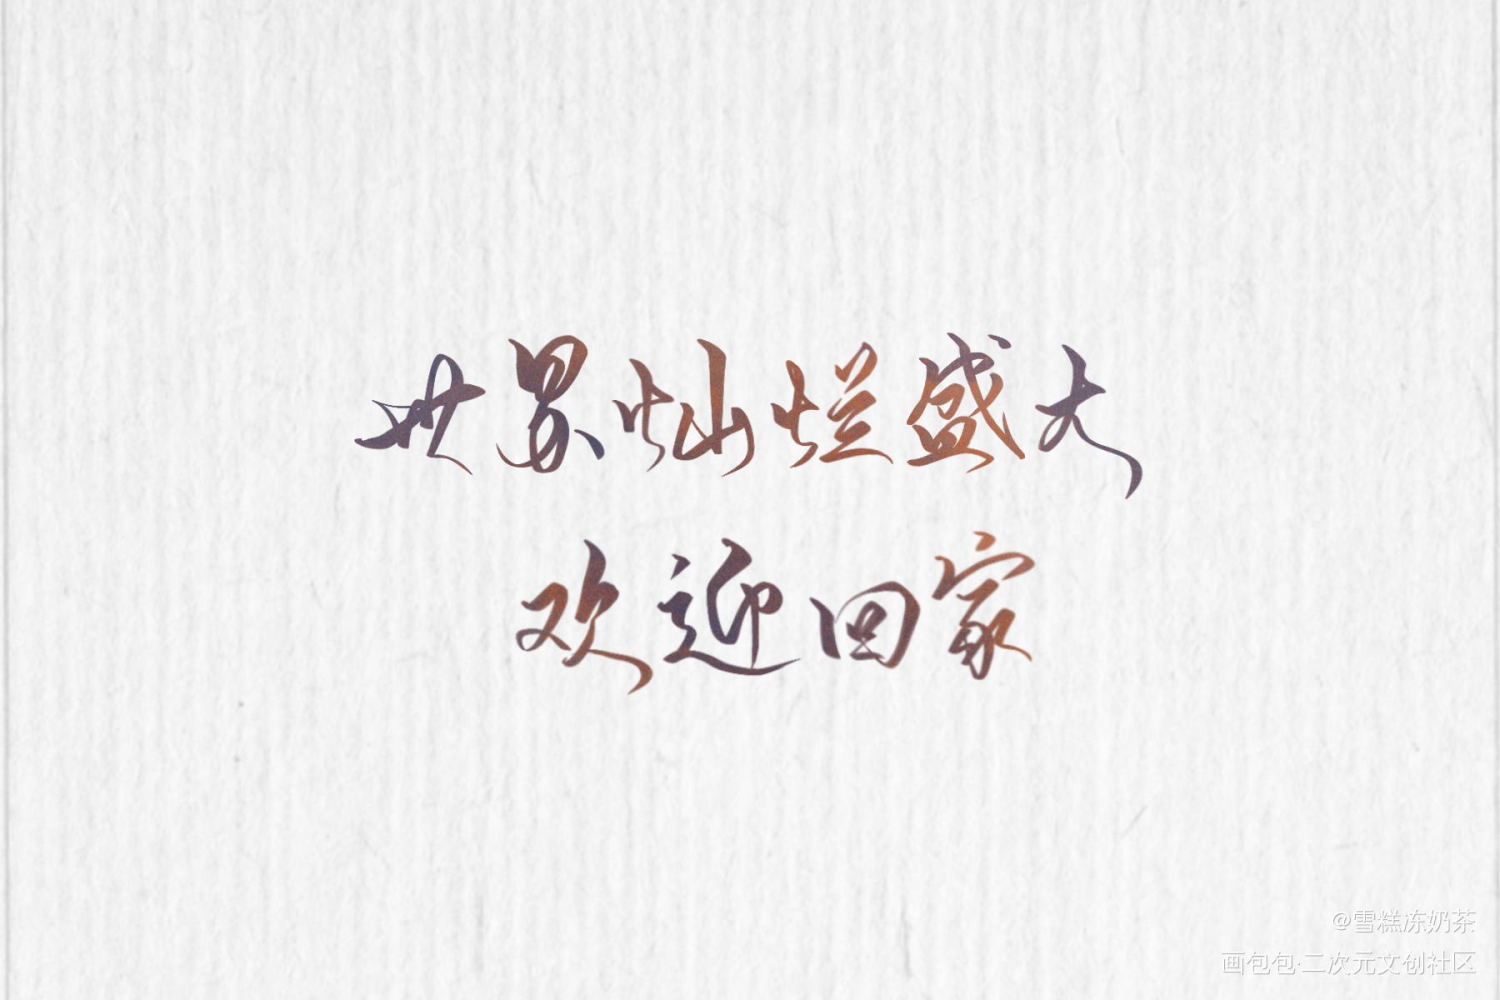 世界灿烂盛大
欢迎回家
@雪糕冻奶茶
画包包·二次元文创社区